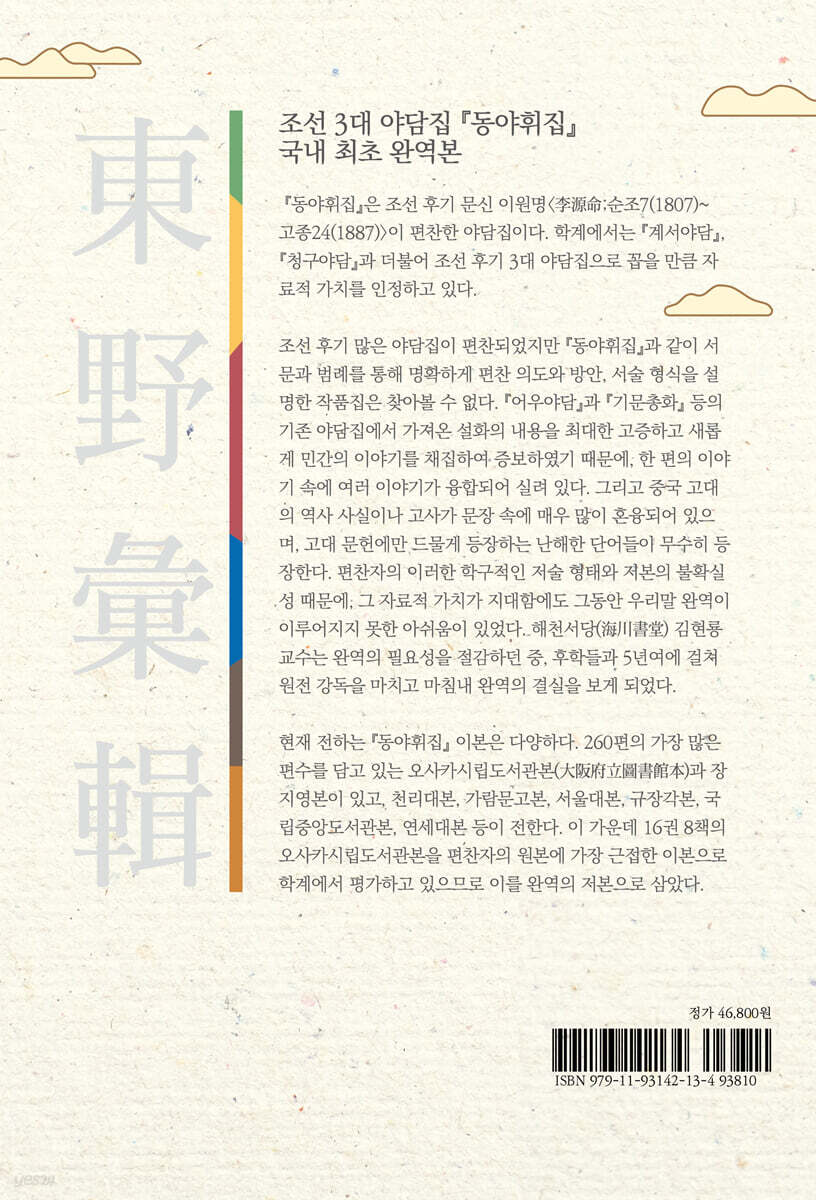 東野彙輯
조선 3대 야담집 『동야휘집』
국내 최초 완역본
『동야휘집』은 조선 후기 문신 이원명〈李源命;순조7(1807)~
고종24(1887)〉이 편찬한 야담집이다. 학계에서는 『계서야담』,
『청구야담』과 더불어 조선 후기 3대 야담집으로 꼽을 만큼 자
료적 가치를 인정하고 있다.
조선 후기 많은 야담집이 편찬되었지만 『동야휘집』과 같이 서
문과 범례를 통해 명확하게 편찬 의도와 방안, 서술 형식을 설
명한 작품집은 찾아볼 수 없다. 『어우야담』과 『기문총화』 등의
기존 야담집에서 가져온 설화의 내용을 최대한 고증하고 새롭
게 민간의 이야기를 채집하여 증보하였기 때문에, 한 편의 이야
기 속에 여러 이야기가 융합되어 실려 있다. 그리고 중국 고대
의 역사 사실이나 고사가 문장 속에 매우 많이 혼융되어 있으
며, 고대 문헌에만 드물게 등장하는 난해한 단어들이 무수히 등
장한다. 편찬자의 이러한 학구적인 저술 형태와 저본의 불확실
성 때문에, 그 자료적 가치가 지대함에도 그동안 우리말 완역이
이루어지지 못한 아쉬움이 있었다. 해천서당(海川書堂) 김현룡
교수는 완역의 필요성을 절감하던 중, 후학들과 5년여에 걸쳐
원전 강독을 마치고 마침내 완역의 결실을 보게 되었다.
현재 전하는 『동야휘집』 이본은 다양하다. 260편의 가장 많은
편수를 담고 있는 오사카시립도서관본(大阪府立圖書館本)과 장
지영본이 있고, 천리대본, 가람문고본, 서울대본, 규장각본, 국
립중앙도서관본, 연세대본 등이 전한다. 이 가운데 16권 8책의
오사카시립도서관본을 편찬자의 원본에 가장 근접한 이본으로
학계에서 평가하고 있으므로 이를 완역의 저본으로 삼았다.
정가 46,800원
ISBN 979-11-93142-13-4 93810
yes24